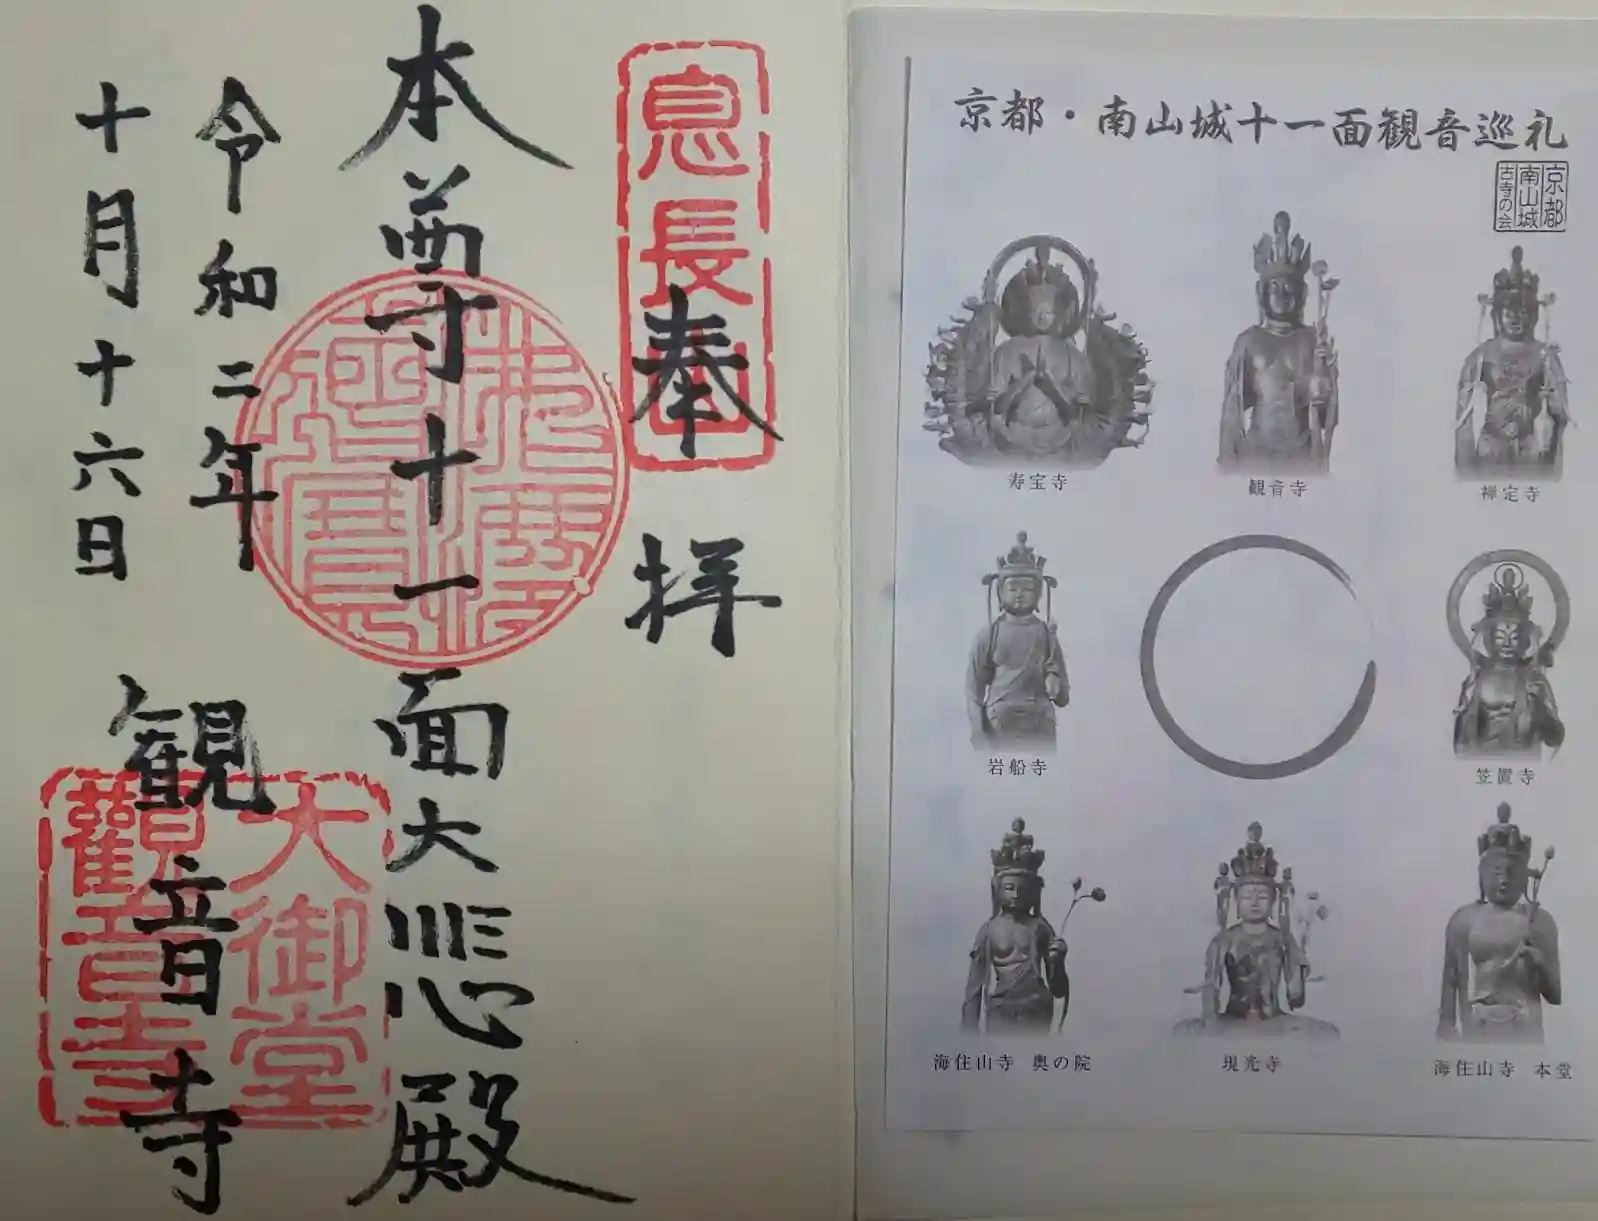 奉拝
本尊十一面大悲殿
令和二年
十月十六日
観音寺
息長山
大御堂
観音寺
京都・南山城十一面観音巡礼
京都
南山城
古寺の会
寿宝寺
観音寺
禅定寺
岩船寺
笠置寺
海住山寺 奥の院
現光寺
海住山寺 本堂